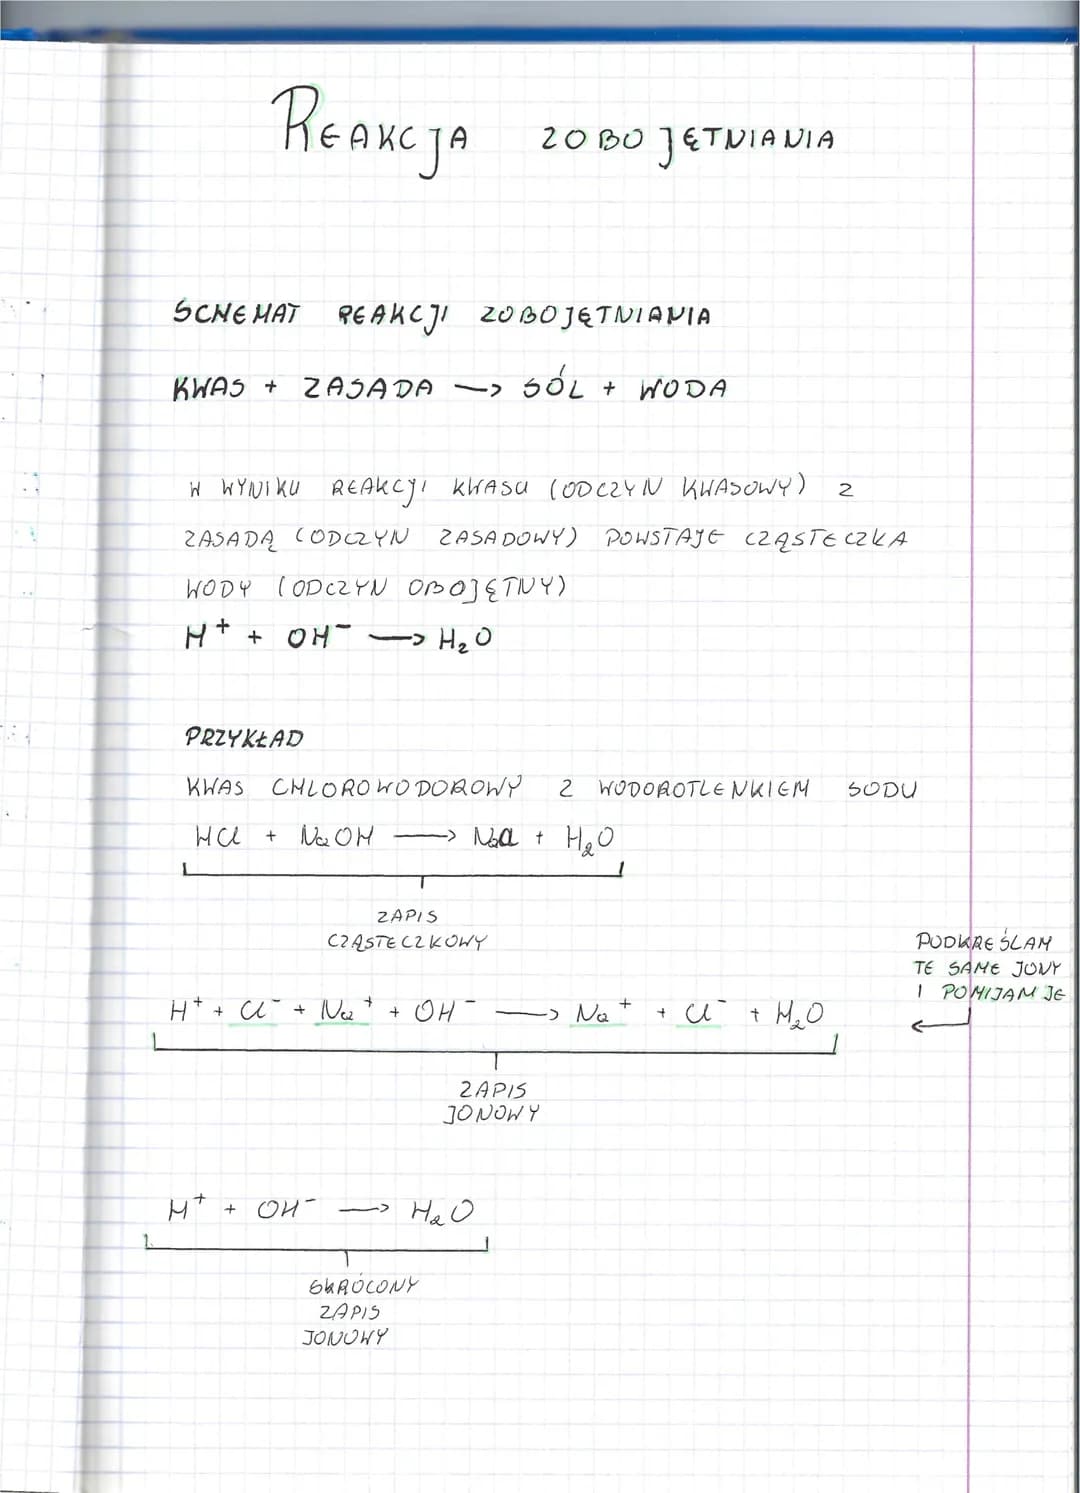 REAKCJA ZOBOJĘTNIANIA
SCHEMAT REAKCJI ZOBOJĘTNIANIA
KWAS + ZASADA —> SÓL + WODA
W WYNIKU REAKCJI KWASU (ODCZYN KWASOWY) Z
ZASADĄ (ODCZYN ZASADOWY) POWSTAJE CZĄSTECZKA
WODY (ODCZYN OBOJĘTNY)
H⁺ + OH⁻ —> H₂O
PRZYKŁAD
KWAS CHLOROWODOROWY Z WODOROTLENKIEM SODU
HCl + NaOH —> NaCl + H₂O
ZAPIS
CZĄSTECZKOWY
PODKREŚLAM
TE SAME JONY
I POMIJAM JE
H⁺ + Cl⁻ + Na⁺ + OH⁻ —> Na⁺ + Cl⁻ + H₂O
ZAPIS
JONOWY
H⁺ + OH⁻ —> H₂O
SKRÓCONY
ZAPIS
JONOWY